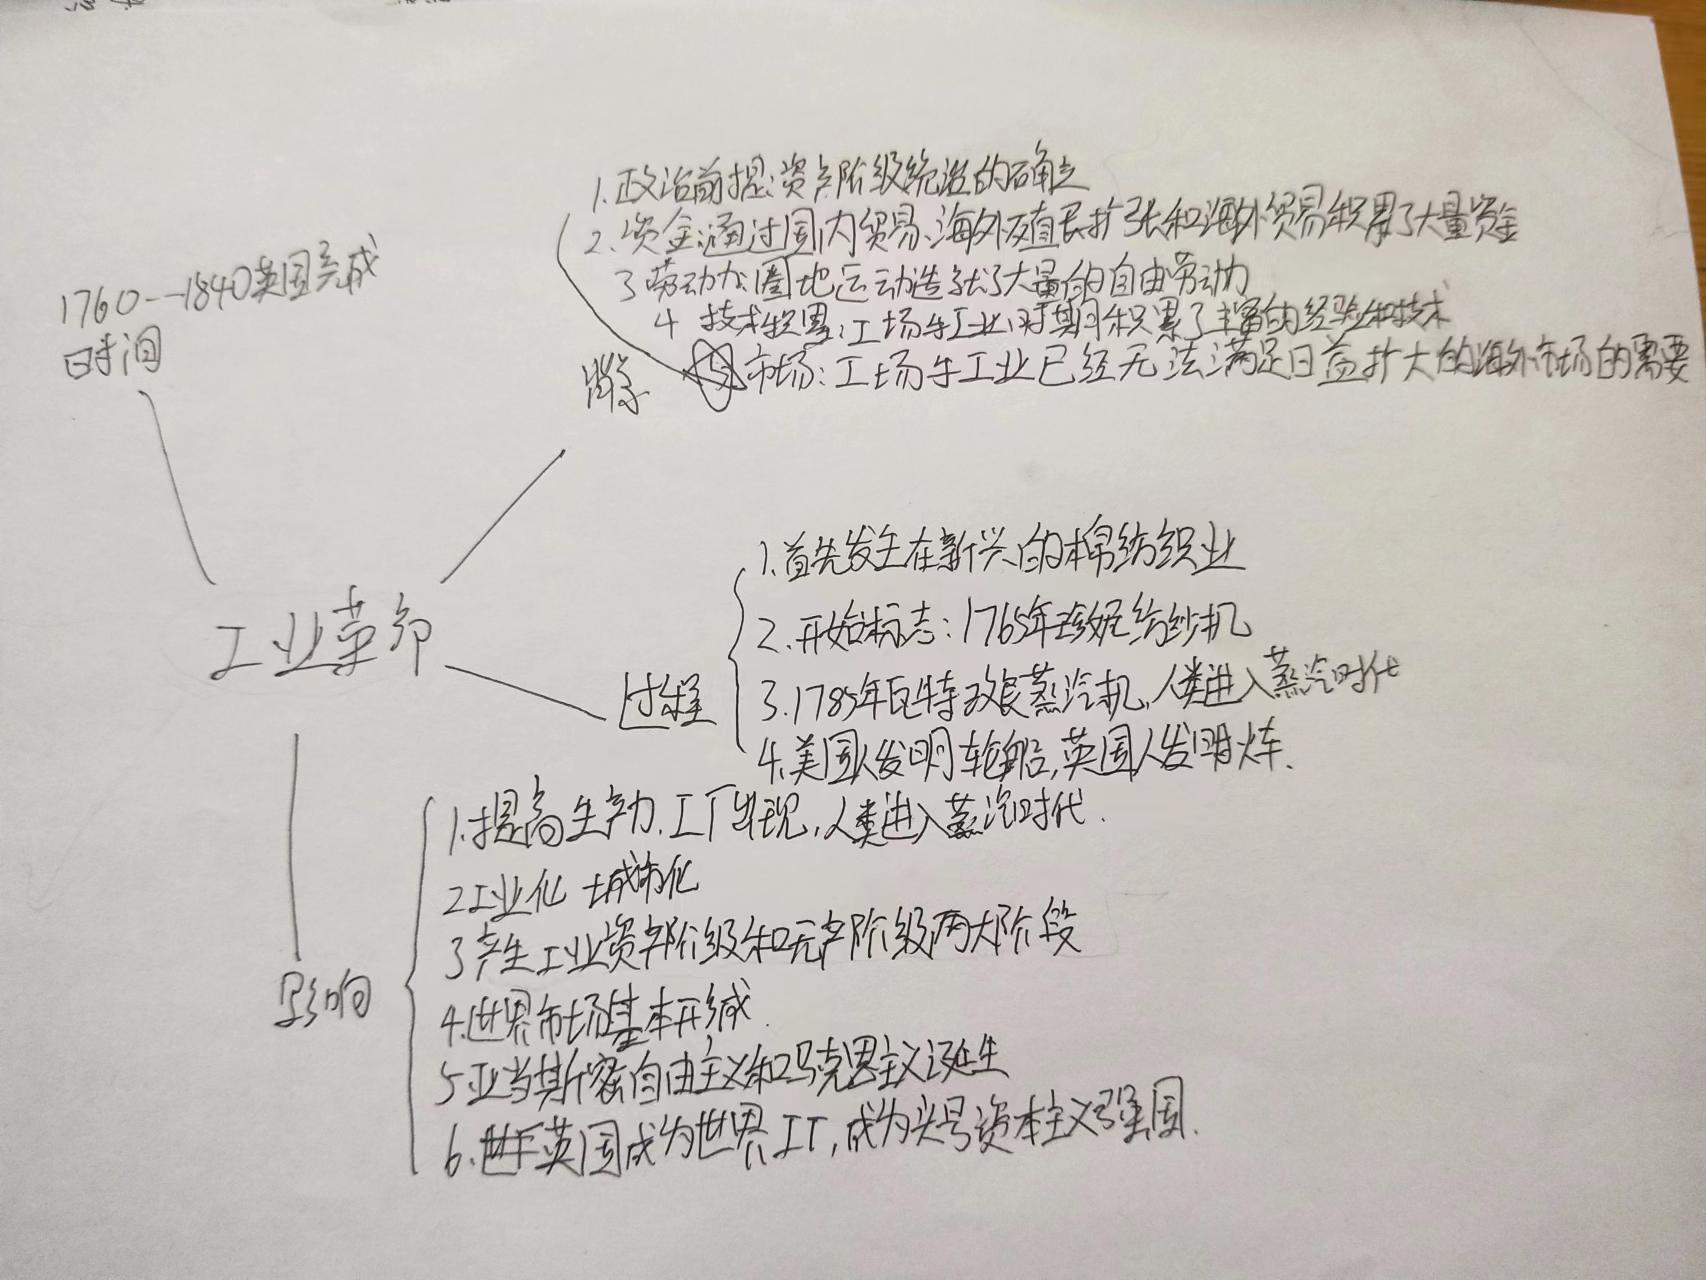 1.政治前提:资产阶级统治的确立
2.资金:通过国内贸易、海外殖民扩张和海外贸易积累了大量资金
3 劳动力:圈地运动造就了大量的自由劳动力
4 技术积累:工场手工业时期积累了丰富的经验和技术
市场:工场手工业已经无法满足日益扩大的海外市场的需要
1760--1840英国完成
时间
工业革命
过程
1.首先发生在新兴的棉纺织业
2.开始标志:1765年珍妮纺纱机
3.1785年瓦特改良蒸汽机,人类进入蒸汽时代
4.美国人发明轮船,英国人发明火车.
影响
1.提高生产力.工厂出现,人类进入蒸汽时代.
2工业化 城市化
3产生工业资产阶级和无产阶级两大阶段
4.世界市场基本形成.
5亚当斯密自由主义和马克思主义诞生
6.英国成为世界工厂,成为头号资本主义强国.